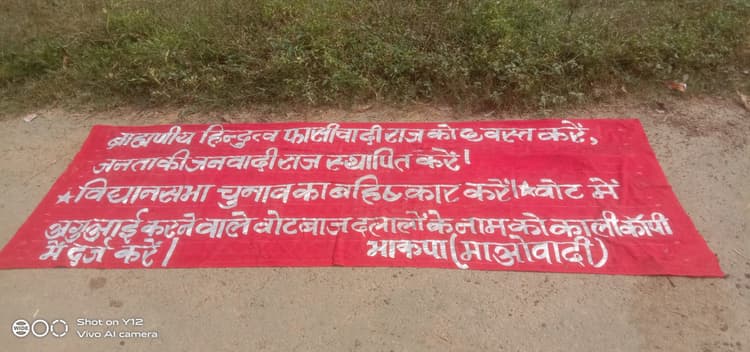 ब्राह्मणीय हिन्दुत्व फासीवादी राज को ध्वस्त करें,
जनता की जनवादी राज स्थापित करें।
★विधानसभा चुनाव का बहिष्कार करें।★वोट में
अगुआई करने वाले वोटबाज दलालों के नाम को काली कॉपी
में दर्ज करें। भाकपा (माओवादी)
WIDE
Shot on Y12
Vivo AI camera